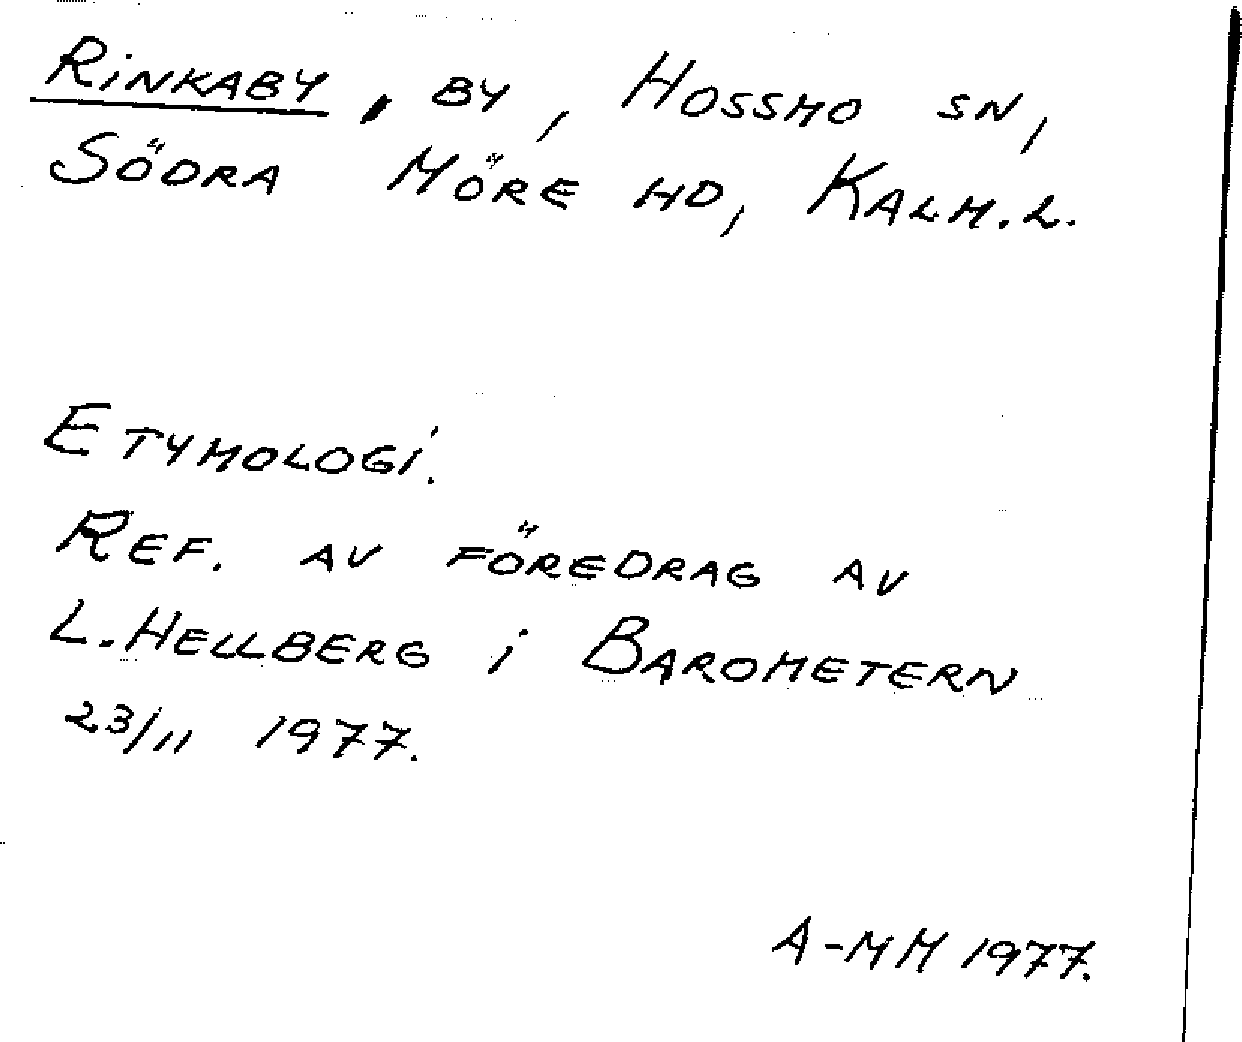 RINKABY, BY, HOSSMO SN,
SÖDRA MÖRE HD, KALM. L.
ETYMOLOGI.
REF. AV FÖREDRAG AV
L. HELLBERG I BAROMETERN
23/11 1977.
A-MM 1977.